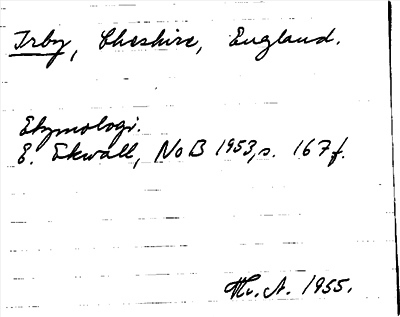 Irby, Cheshire, England.
Etymologi.
E. Ekwall, NoB 1953, s. 167f.
Hr. A. 1955.